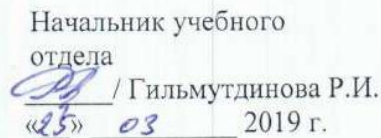 Начальник учебного
отдела
/ Гильмутдинова Р.И.
«25» 03 2019 г.